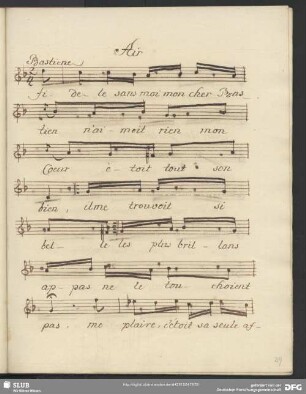 Air
Bastiene
fi- de- le sans moi mon cher Bas
tien n'ai- moit rien mon
Coeur é- toit tout son
bien, il me trouvoit si
bel- le les plus bril- lans
ap- pas ne le tou- choient
pas. me plaire, c'étoit sa seule af-
SLUB
Wir führen Wissen.
gefördert von der
DFG
Deutsche Forschungsgemeinschaft